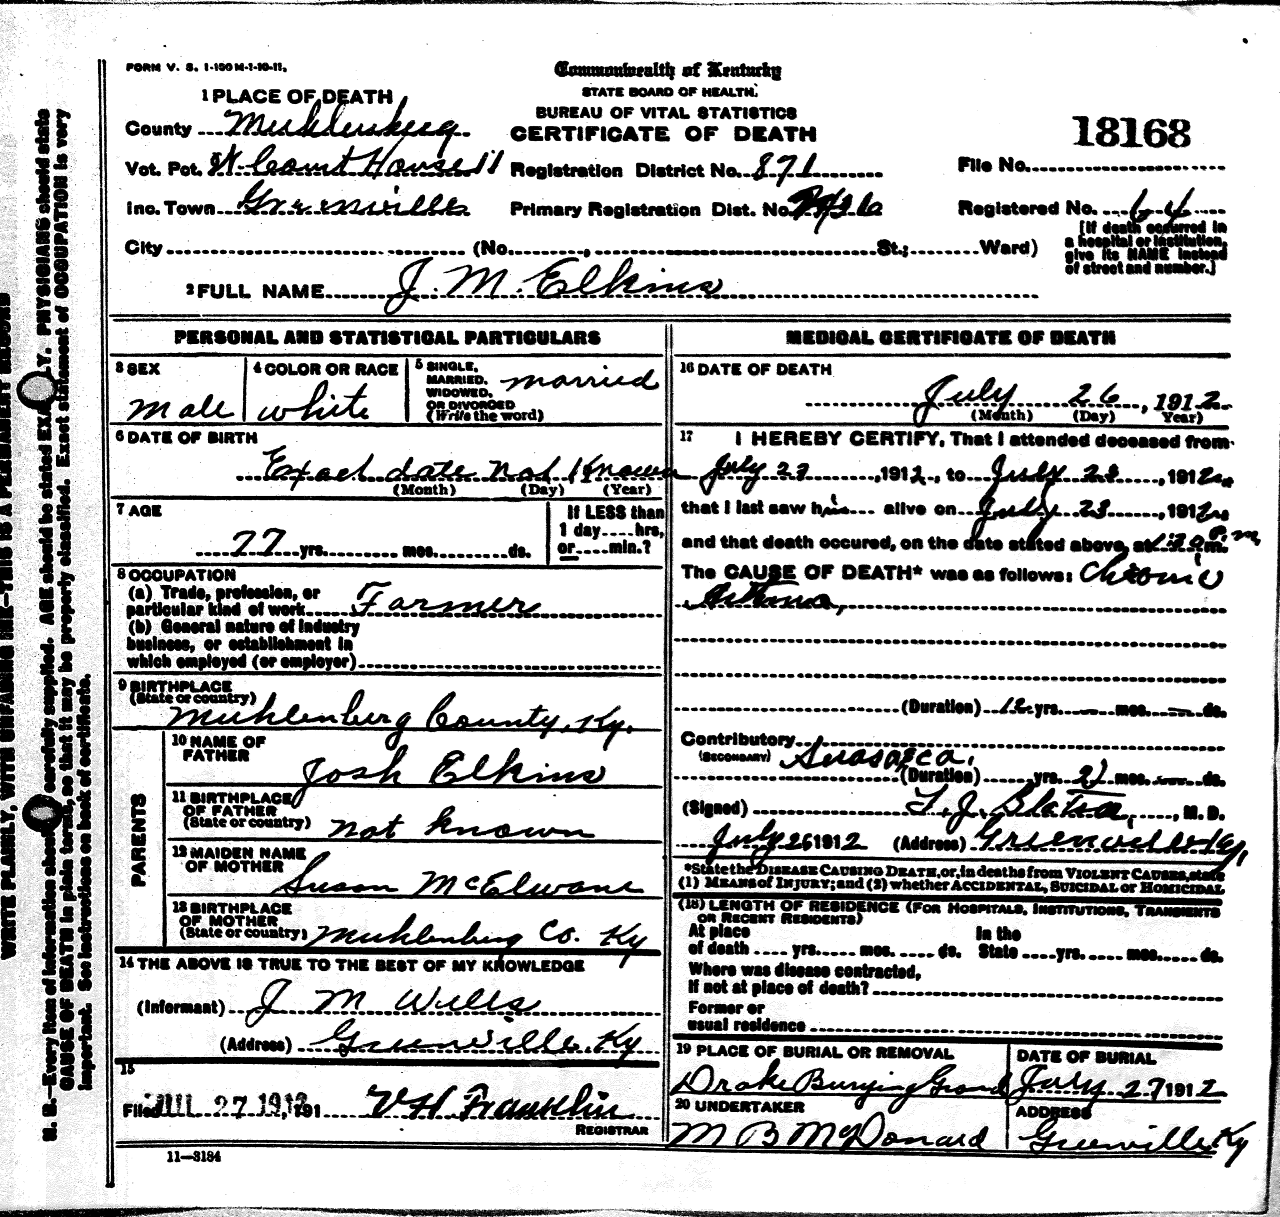 FORM V. S. 1-100 M-1-10-11.
Commonwealth of Kentucky
STATE BOARD OF HEALTH.
BUREAU OF VITAL STATISTICS
CERTIFICATE OF DEATH
1 PLACE OF DEATH
County Muhlenberg
Vot. Pct. Court House 11
Registration District No. 871
18168
File No.
Inc. Town Greenville
Primary Registration Dist. No.
Registered No. 64
City (No. , St.; Ward)
[If death occurred in
a hospital or institution,
give its NAME instead
of street and number.]
2 FULL NAME J. M. Elkins
PERSONAL AND STATISTICAL PARTICULARS
3 SEX
Male
4 COLOR OR RACE
white
5 SINGLE,
MARRIED,
WIDOWED,
OR DIVORCED
(Write the word)
married
6 DATE OF BIRTH
Exact date not Known
(Month) (Day) (Year)
7 AGE
77 yrs. mos. ds.
If LESS than
1 day hrs,
or min.?
8 OCCUPATION
(a) Trade, profession, or
particular kind of work Farmer
(b) General nature of industry
business, or establishment in
which employed (or employer)
9 BIRTHPLACE
(State or country)
Muhlenberg County, Ky.
PARENTS
10 NAME OF
FATHER
Josh Elkins
11 BIRTHPLACE
OF FATHER
(State or country)
not known
12 MAIDEN NAME
OF MOTHER
Susan McElwane
13 BIRTHPLACE
OF MOTHER
(State or country) Muhlenberg Co. Ky
14 THE ABOVE IS TRUE TO THE BEST OF MY KNOWLEDGE
(Informant) J M Wells
(Address) Greenville, Ky
15
Filed JUL 27 1912, 191 V H Franklin
REGISTRAR
11-3184
MEDICAL CERTIFICATE OF DEATH
16 DATE OF DEATH
July 26, 1912
(Month) (Day) Year)
17 I HEREBY CERTIFY, That I attended deceased from
July 23, 1912, to July 23, 1912
that I last saw him alive on July 23, 1912
and that death occured, on the date stated above, at m.
The CAUSE OF DEATH* was as follows: Chronic
Asthma,
(Duration) 12 yrs. mos. ds.
Contributory
(SECONDARY) Anasarca.
(Duration) yrs. 2 mos. ds.
(Signed) T. J. , M. D.
July 26 1912 (Address) Greenville Ky,
*State the DISEASE CAUSING DEATH, or, in deaths from VIOLENT CAUSES, state
(1) MEANS of INJURY; and (2) whether ACCIDENTAL, SUICIDAL or HOMICIDAL
(18) LENGTH OF RESIDENCE (FOR HOSPITALS, INSTITUTIONS, TRANSIENTS
OR RECENT RESIDENTS)
At place
of death yrs. mos. ds.
In the
State yrs. mos. ds.
Where was disease contracted,
If not at place of death?
Former or
usual residence
19 PLACE OF BURIAL OR REMOVAL
Drake Burying Ground
DATE OF BURIAL
July 27 1912
20 UNDERTAKER
M B McDonard
ADDRESS
Greenville Ky
WRITE PLAINLY, WITH UNFADING INK-THIS IS A PERMANENT RECORD
N. B.-Every item of information should carefully supplied. AGE should be stated EXACTLY. PHYSICIANS should state
CAUSE OF DEATH in plain terms, so that it may be properly classified. Exact statement of OCCUPATION is very
important. See instructions on back of certificate.